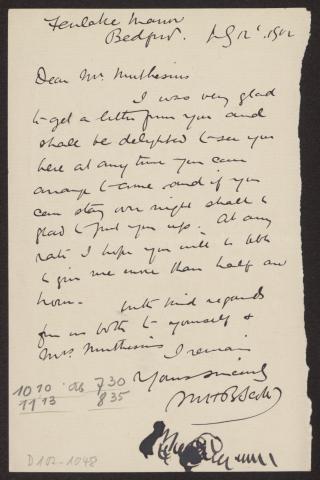 Fenlake Manor
Bedford. July 12th 1902
Dear Mr. Muthesius
I was very glad
to get a letter from you and
shall be delighted to see you
here at any time you can
arrange to come and if you
can stay over night shall be
glad to put you up. At any
rate I hope you will be able
to give me more than half an
hour. With kind regards
from us both to yourself &
Mrs. Muthesius
I remain
Yours sincerely
MHBaillieScott
10 10 7 30
11 13 8 35
D 102-1048